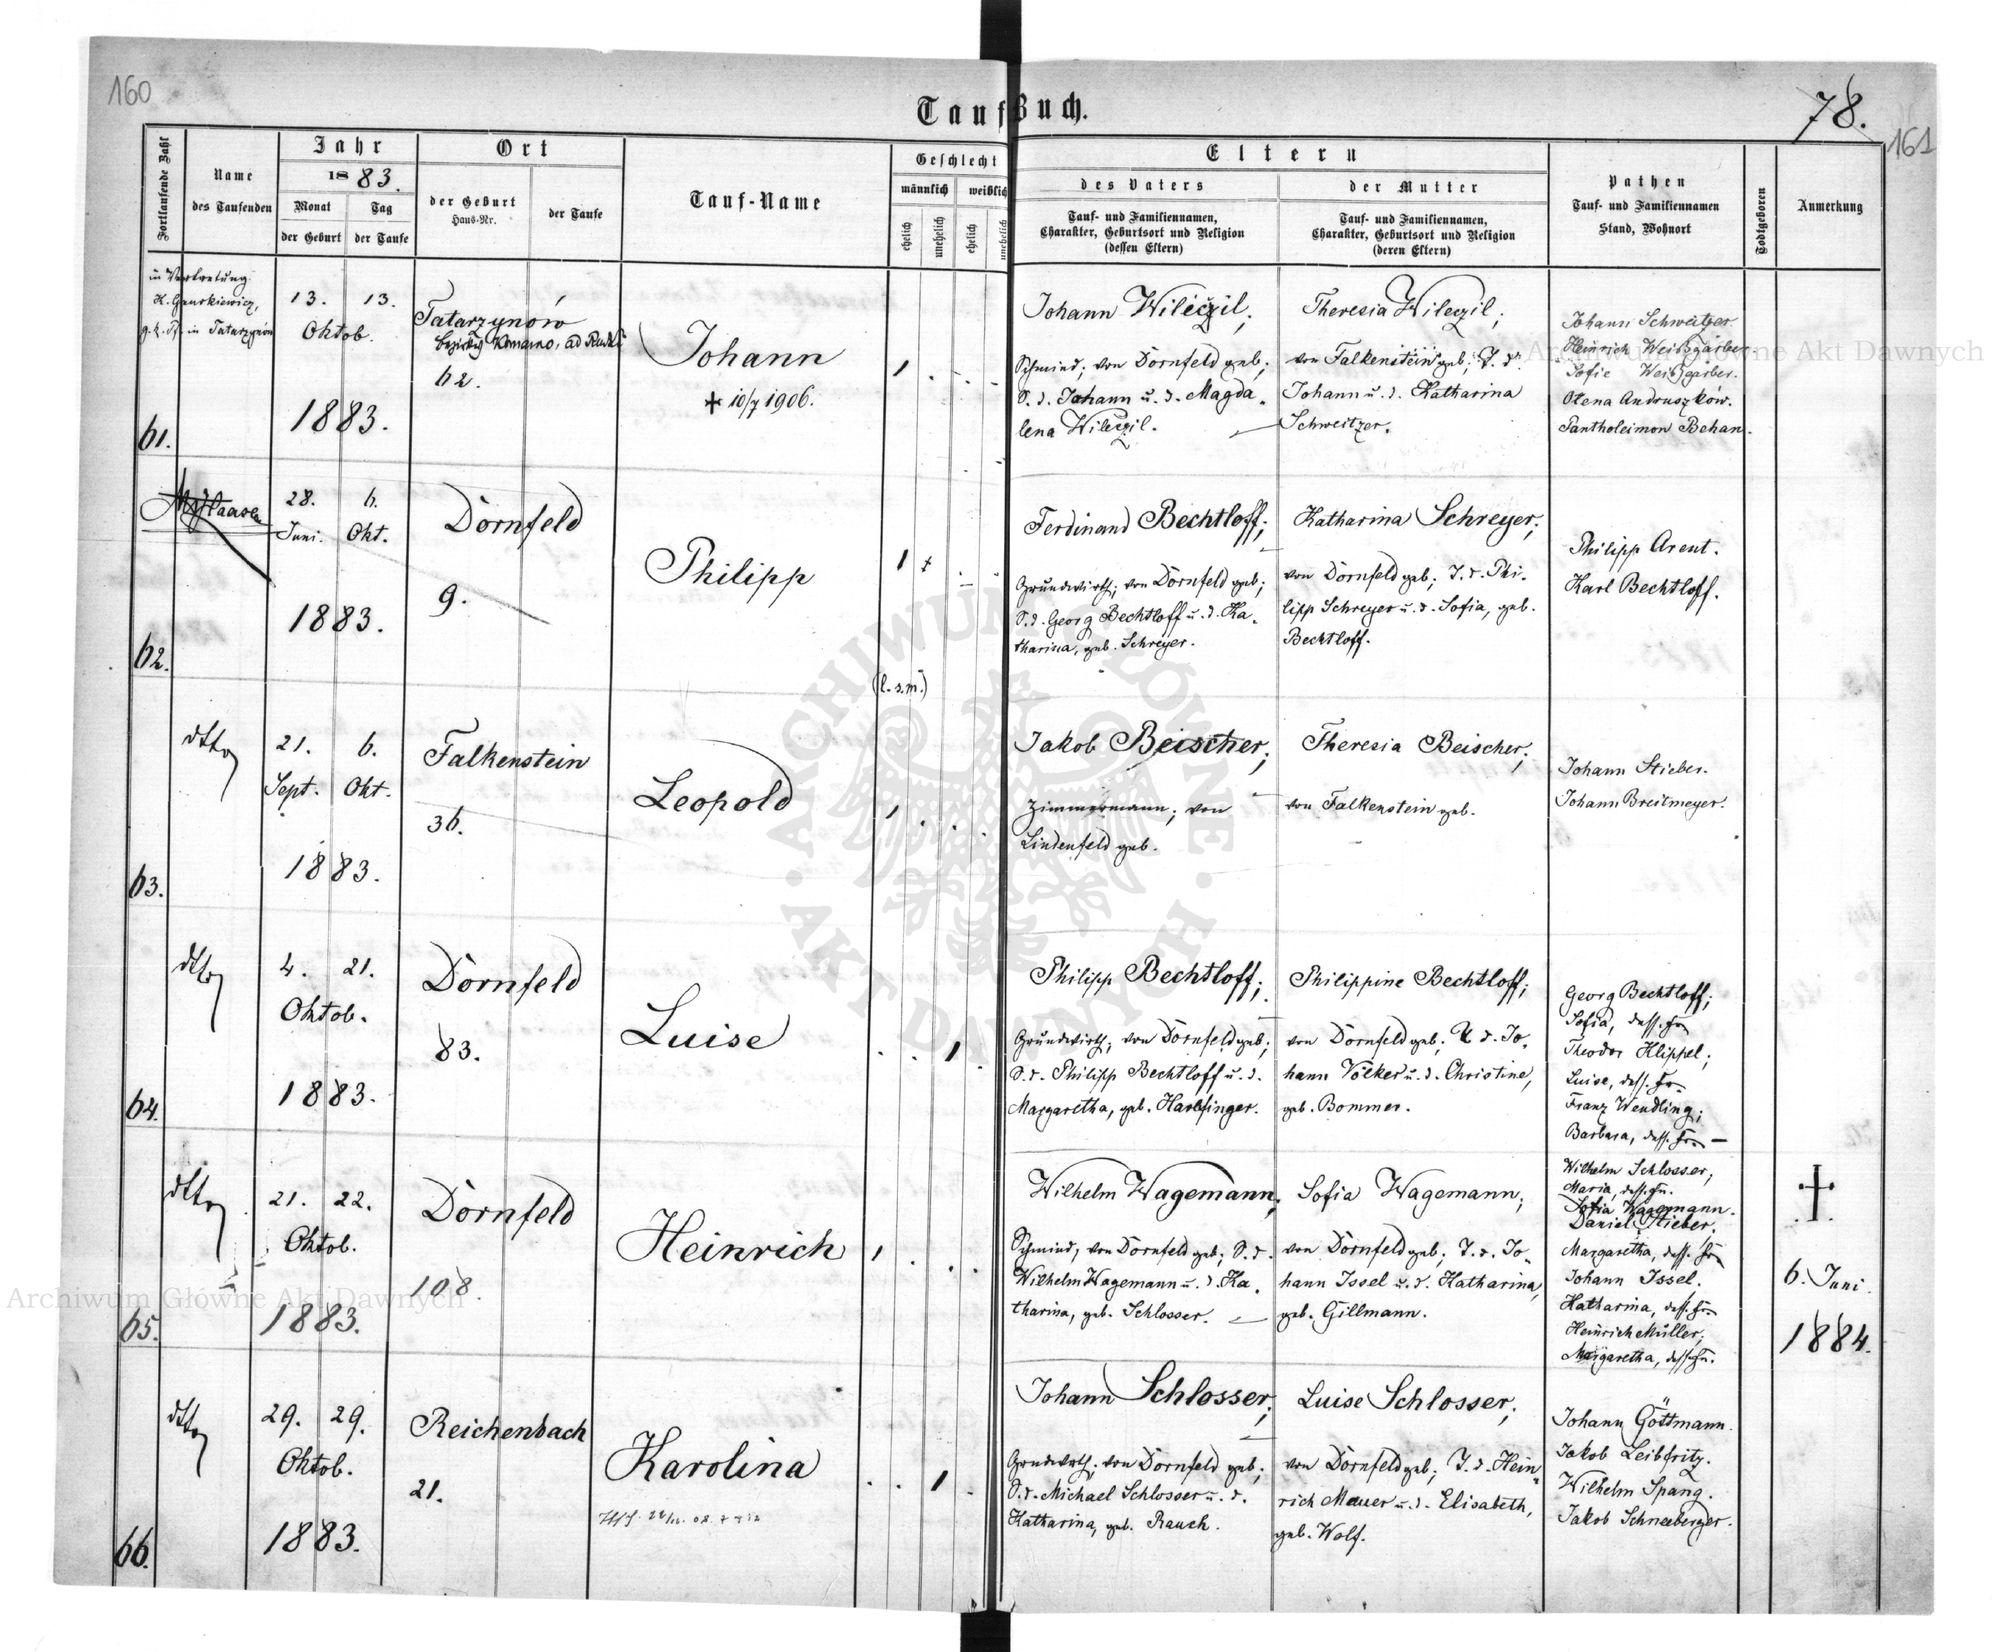 160
Taufbuch.
78.
161
Fortlaufende Zahl
Name
des Taufenden
Jahr
1883.
Monat
Tag
der Geburt
der Taufe
Ort
der Geburt
Haus-Nr.
der Taufe
Tauf-Name
Geschlecht
männlich
weiblich
ehelich
unehelich
ehelich
unehelich
Eltern
des Vaters
Tauf- und Familiennamen,
Charakter, Geburtsort und Religion
(dessen Eltern)
der Mutter
Tauf- und Familiennamen,
Charakter, Geburtsort und Religion
(deren Eltern)
Pathen
Tauf- und Familiennamen
Stand, Wohnort
Todtgeboren
Anmerkung
61.
in Vertretung
13. 13.
Oktob.
1883.
Tatarzynów
62.
Johann
+ 10/7 1906.
1
Johann Wileczil,
Schmied; von Dornfeld geb;
S. d. Johann u. d. Magda-
lena Wileczil.
Theresia Wileczil;
von Falkenstein geb; T. d.
Johann u. d. Katharina
Schweitzer.
Johann Schweitzer
Heinrich Weißgärber.
Sofie Weißgärber.
Olena Andruszków.
Pantholeimon Behan.
62.
28. 6.
Juni. Okt.
1883.
Dornfeld
9.
Philipp
1
(l. s. m.)
Ferdinand Bechtloff;
Grundwirth; von Dornfeld geb;
S. d. Georg Bechtloff u. d. Ka-
tharina, geb. Schreyer.
Katharina Schreyer;
von Dornfeld geb; T. d. Phi-
lipp Schreyer u. d. Sofia, geb.
Bechtloff.
Philipp Arent.
Karl Bechtloff.
63.
dtto
21. 6.
Sept. Okt.
1883.
Falkenstein
36.
Leopold
1
Jakob Beischer;
Zimmermann; von
Lindenfeld geb.
Theresia Beischer;
von Falkenstein geb.
Johann Stieber.
Johann Breitmeyer.
64.
dtto
4. 21.
Oktob.
1883.
Dornfeld
83.
Luise
1
Philipp Bechtloff;
Grundwirth; von Dornfeld geb;
S. d. Philipp Bechtloff u. d.
Margaretha, geb. Harlfinger.
Philippine Bechtloff;
von Dornfeld geb; T. d. Jo-
hann Völker u. d. Christine,
geb. Bommer.
Georg Bechtloff;
Sofia, dess. Fr.
Theodor Klippel;
Luise, dess. Fr.
Franz Wendling;
Barbara, dess. Fr.
65.
dtto
21. 22.
Oktob.
1883.
Dornfeld
108.
Heinrich
1
Wilhelm Wagemann;
Schmied, von Dornfeld geb; S. d.
Wilhelm Wagemann u. d. Ka-
tharina, geb. Schlosser.
Sofia Wagemann;
von Dornfeld geb; T. d. Jo-
hann Issel u. d. Katharina,
geb. Gillmann.
Wilhelm Schlosser,
Maria, dess. Fr.
Sofia Wagemann.
Daniel Stieber;
Margaretha, dess. Fr.
Johann Issel.
Katharina, dess. Fr.
Heinrich Müller;
Margaretha, dess. Fr.
6. Juni
1884.
66.
dtto
29. 29.
Oktob.
1883.
Reichenbach
21.
Karolina
1
Johann Schlosser;
Grundwirth; von Dornfeld geb;
S. d. Michael Schlosser u. d.
Katharina, geb. Rauch.
Luise Schlosser;
von Dornfeld geb; T. d. Hein-
rich Mauer u. d. Elisabeth,
geb. Wolf.
Johann Göttmann.
Jakob Leibfritz.
Wilhelm Spang.
Jakob Schneeberger.
Archiwum Główne Akt Dawnych
Archiwum Główne Akt Dawnych
ARCHIWUM GŁÓWNE
AKT DAWNYCH